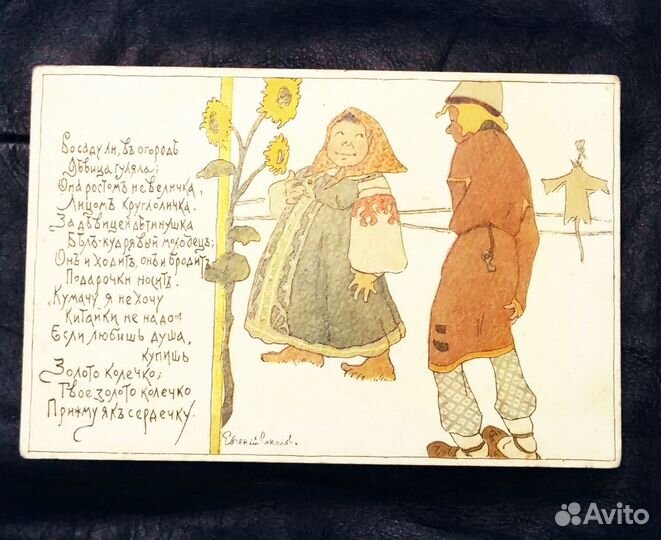 Во саду ли, въ огородѣ
Дѣвица гуляла;
Она ростомъ не величка,
Лицомъ круглоличка.
За дѣвицей дѣтинушка
Былъ кудрявый молодецъ;
Онъ и ходитъ, онъ и бродитъ,
Подарочки носитъ.
"Кумачу я не хочу
Китайки не надо"
Если любишь душа,
купишь
Золото колечко;
Твое золото колечко
Прижму я къ сердечку.
Евгенiй Соколовъ.
Avito